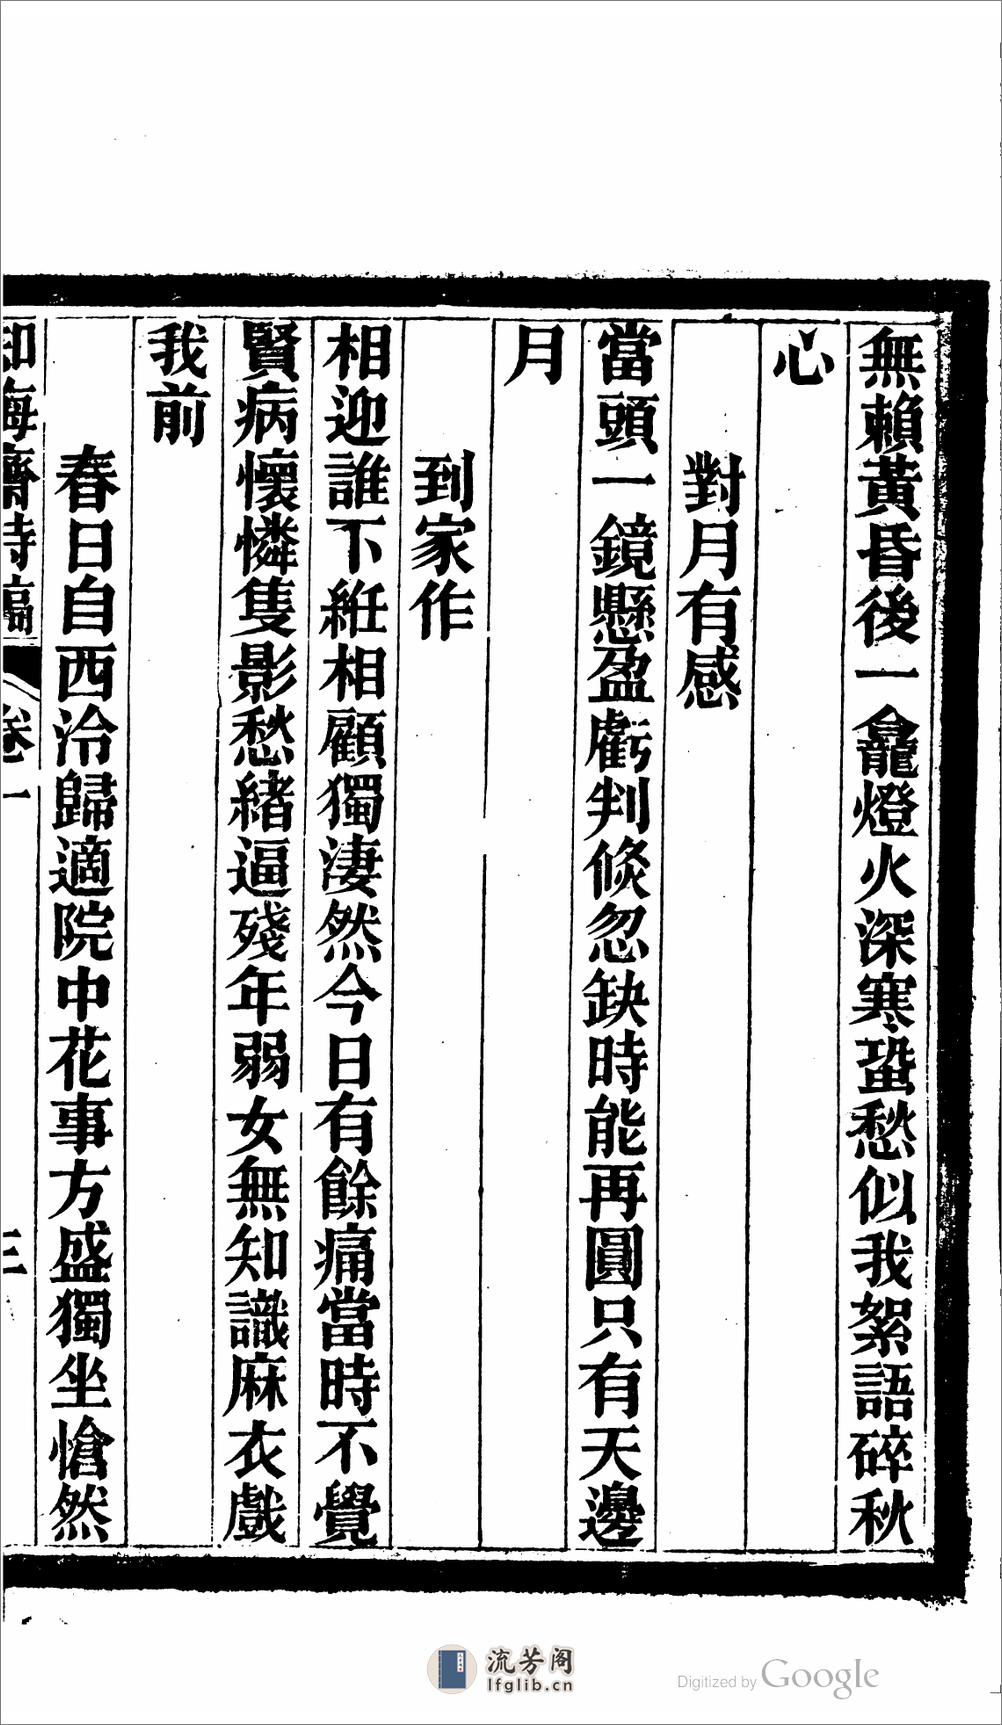 無賴黃昏後一龕燈火深寒蛩愁似我絮語碎秋
心
對月有感
當頭一鏡懸盈虧判倐忽缺時能再圓只有天邊
月
到家作
相迎誰下絍相顧獨淒然今日有餘痛當時不覺
賢病懷憐隻影愁緒逼殘年弱女無知識麻衣戲
我前
春日自西泠歸適院中花事方盛獨坐愴然
知悔齋詩稿 卷一 三
流芳阁
lfglib.cn
Digitized by Google